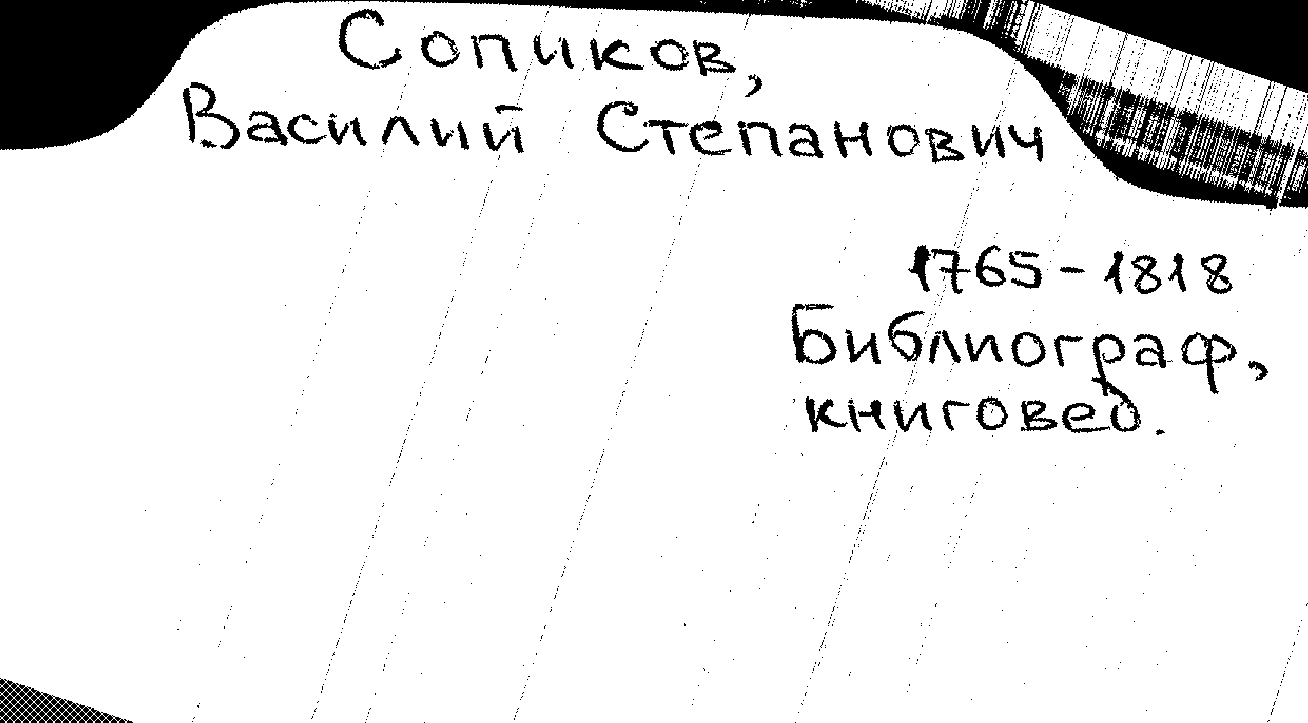 Сопиков,
Василий Степанович
1765-1818
Библиограф,
книговед.